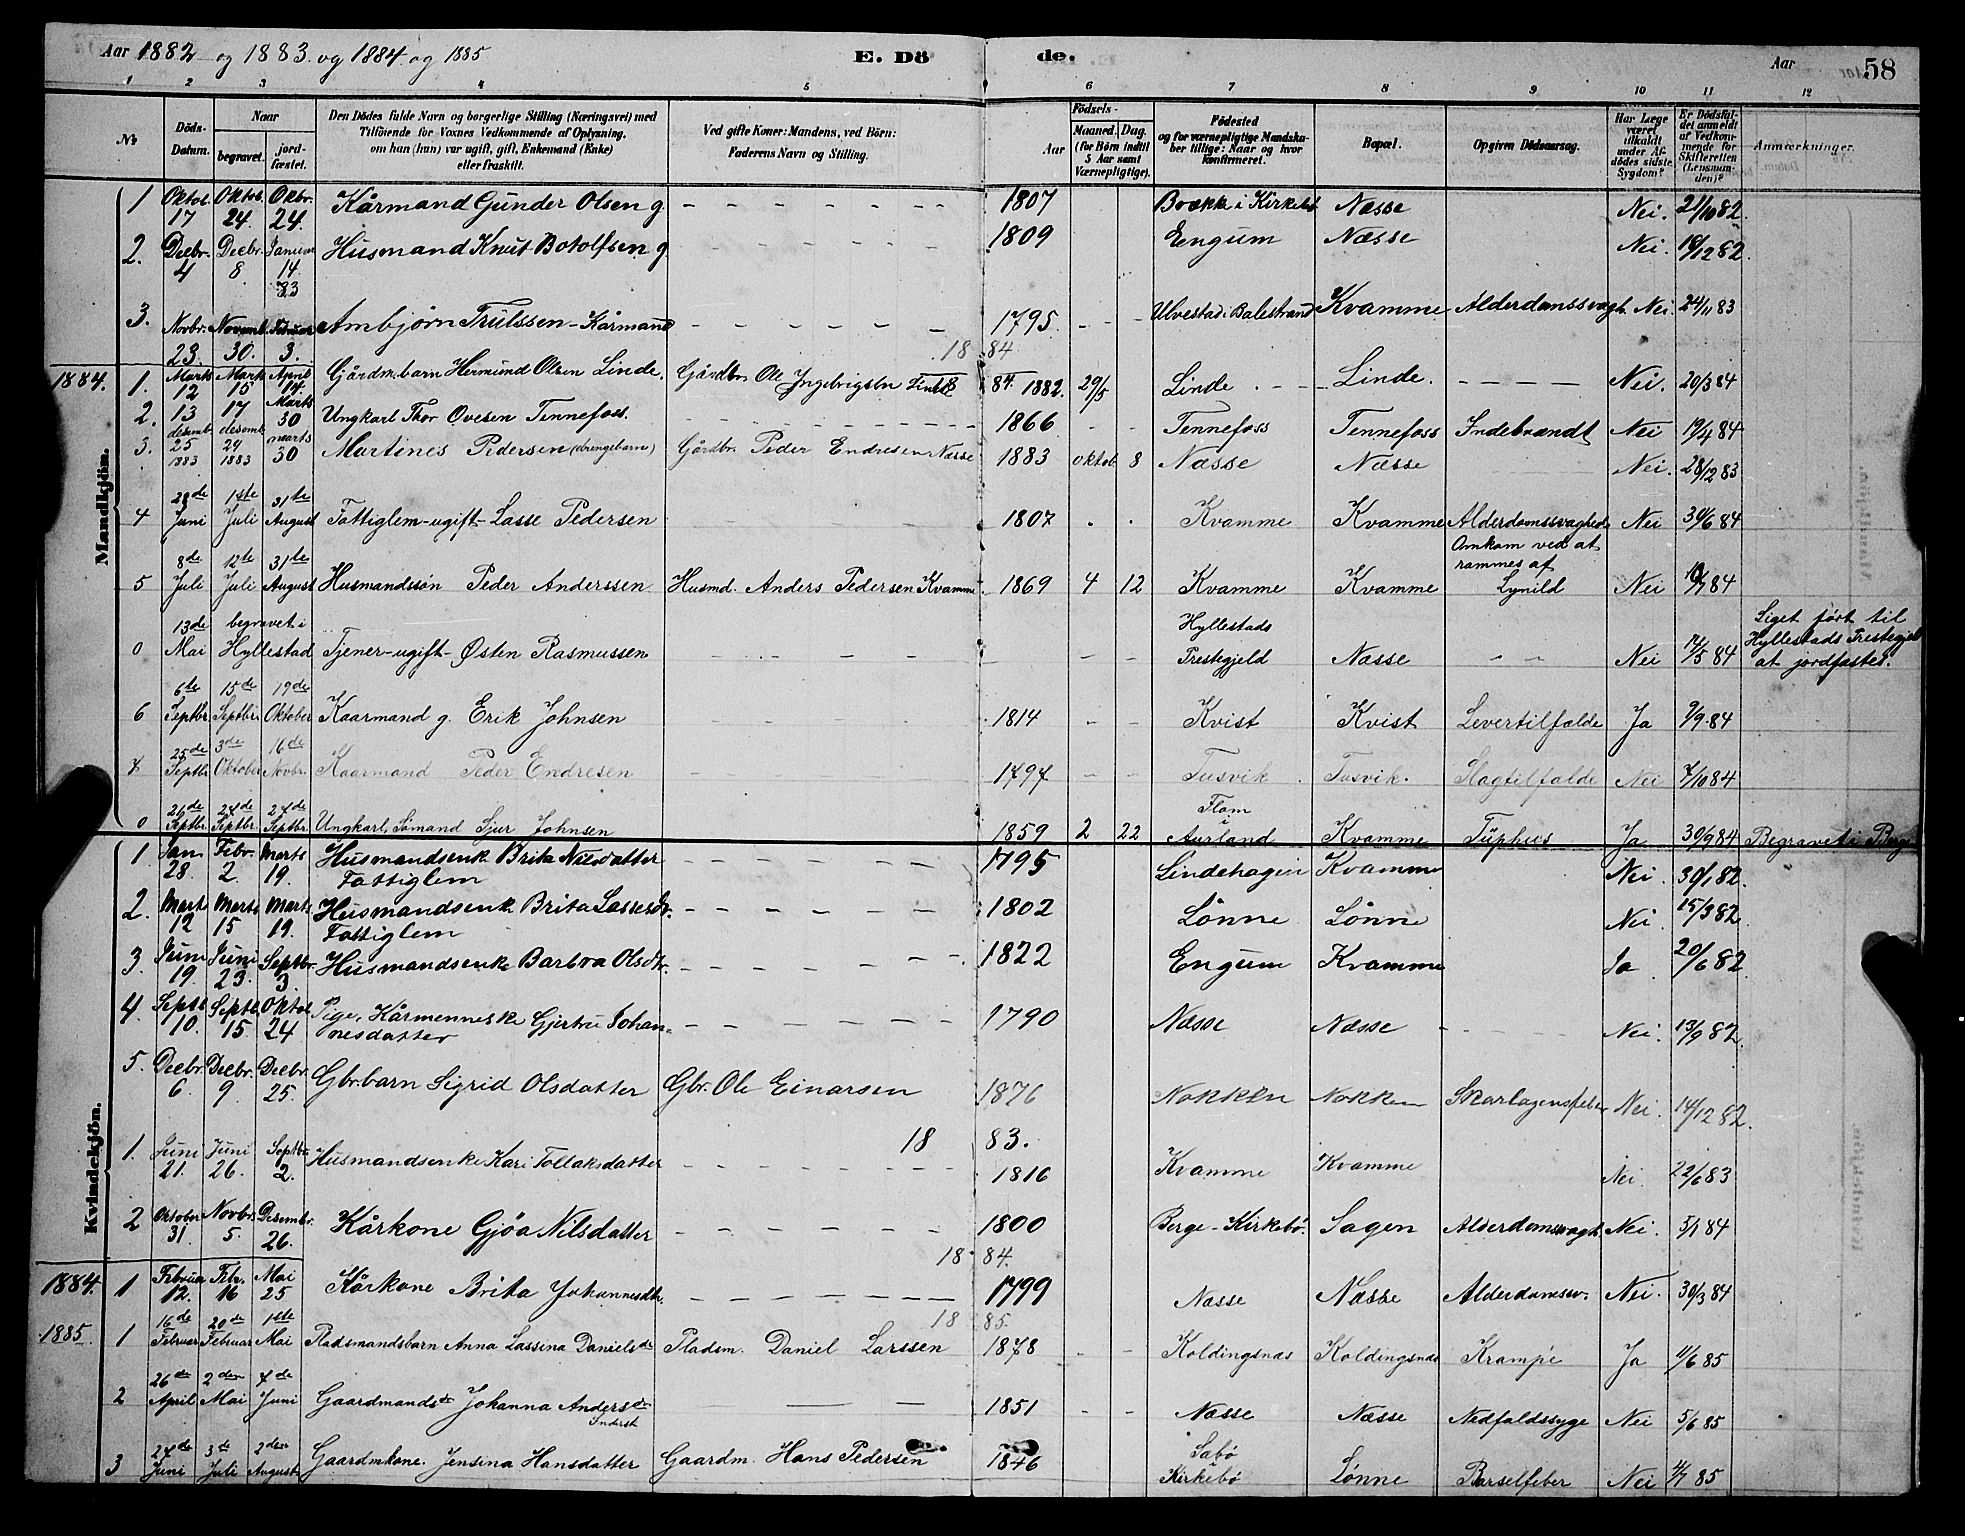 Aar 1882 og 1883 og 1884 og 1885
E. Dö de.
Aar 58
1 2 3 4 5 6 7 8 9 10 11 12
No
Döds-Datum.
Naar
begravet.
jord-fæstet.
Den Dödes fulde Navn og borgerlige Stilling (Næringsvei) med
Tilföiende for Voxnes Vedkommende af Oplysning,
om han (hun) var ugift, gift, Enkemand (Enke)
eller fraskilt.
Ved gifte Koner: Mandens, ved Börn:
Faderens Navn og Stilling.
Födsels-
Aar
Maaned. Dag.
(for Börn indtil
5 Aar samt
Værnepligtige).
Födested
og for værnepligtige Mandska-
ber tillige: Naar og hvor
konfirmeret.
Bopæl.
Opgiven Dödsaarsag.
Har Læge
været
tilkaldt
under Af-
dödes sidste
Sygdom?
Er Dödsfal-
det anmeldt
af Vedkom-
mende for
Skifteretten
(Lensman-
den)?
Anmærkninger.
Mandkjön.
1 Oktob. 17 Oktob. 24 Okbr. 24. Kårmand Gunder Olsen g. 1807 Brække i Kirkebø Næsse Nei. 21/10 82.
2. Decbr. 4 Decbr. 8 Januar 14. 83 Husmand Knut Botolfsen g. 1809 Engum Næsse Nei. 18/12 82.
3. Novbr. 23. Novemb. 30. Februar 3. Ambjörn Trulssen - Kårmand 1795. Ulvestad i Balestrand Kvamme Alderdomssvagh. Nei. 24/11 83
18 84
1884. 1. Marts 12 Mark 15 April 14. Gårdm.barn Hermund Olsen Linde. Gårdbr. Ole Ingebrigtsn Linde 84. 1882. 29/5 Linde. Linde. Nei. 20/3 84
2. 13 17 Marts 30 Ungkarl Thor Ovesen Tennefoss. 1866 Tennefoss Tennefoss Indebrændt Nei 19/4 84
3. desemb. 25 1883 desemb. 29 1883 marts 30 Martines Pedersen (drengebarn) Gårdbr. Peder Endresen Næsse 1883 oktob. 8 Næsse Næsse Nei. 28/12 83
4 28de Juni 1ste Juli 31te August Fattiglem - ugift - Lasse Pedersen 1807 Kvamme Kvamme Alderdomssvaghed Nei 30/6 84
5 8de Juli 12te Juli 31te August Husmandssön Peder Anderssen Husmd. Anders Pedersen Kvamme 1869 4 12 Kvamme Kvamme Omkom ved at rammes af Lynild Nei 10/7 84
0 13de Mai begravet i Hyllestad Tjener - ugift - Østen Rasmussen Hyllestads Prestegjeld Næsse Nei 17/5 84 Liget ført til Hyllestads Prestegjeld at jordfæstes.
6 6te Septbr. 15de Septbr. 19de Oktober Kaarmand g. Erik Johnsen 1814 Kvist Kvist Levertilfælde Ja 9/9 84
7 25de Septbr 3de Oktober 16de Novbr. Kaarmand Peder Endresen 1797 Tusvik. Tusvik. Slagtilfælde Nei 7/10 84
0 21de Septbr. 24de Septbr. 24de Septbr. Ungkarl, Sömand Sjur Johnsen 1859 2 22 Flam i Aurland Kvamme Typhus Ja 30/9 84 Begravet i Berge
Kvindekjön.
1 Jan 28. Febr. 2. Marts 19. Husmandsenk Brita Nilsdatter Fattiglem 1795 Lindehagen Kvamme Nei. 30/1 82.
2. Mart 12 Marts 15 Marts 19. Husmandsenk Brita Lassesd. Fattiglem 1802 Lønne Lønne Nei. 15/3 82.
3. Juni 19. Juni 23. Septbr. 3. Husmandsenk Barbra Olsdtr. 1822 Engum Kvamme Ja. 20/6 82
4. Septb 10. Septb. 15. Oktob 24 Pige, Kårmenneske Gjertru Johan- nesdatter 1790 Næsse Næsse Nei. 13/9 82.
5. Decbr. 6. Decbr. 9 Decbr. 25. Gbr.barn Sigrid Olsdatter Gbr. Ole Einarsen 1876 Nokken Nokken Skarlagensfeber Nei. 14/12 82.
18 83.
1. Juni 21. Juni 26. Septbr. 2. Husmandsenke Kari Tollaksdatter 1816 Kvamme Kvamme Nei. 22/6 83
2 Oktober 31. Novbr. 5. Desembr. 26. Kårkone Gjöa Nilsdatter 1800 Berge - Kirkebø. Sagen Alderdomsvagh. Nei. 5/1 84
18 84.
1884. 1 Februar 12. Febr. 16 Mai 25 Kårkone Brita Johannesdtr. 1799 Næsse Næsse Alderdomssv. Nei. 30/3 84
18 85.
1885. 1 16de Februar 20de Februar 1ste Mai Pladsmandsbarn Anna Lassina Danielsdr Pladsm. Daniel Larssen 1878 Koldingsnæs Koldingsnæs Krampe Ja 11/6 85
2 26de April 2den Mai 7de Juni Gaardmandsdr Johanna Andersdr 1851 Næsse Næsse Nedfaldssyge Nei 5/6 85
3 27de Juni 3de Juli 2den August Gaardmkone. Jensina Hansdatter Gaardm. Hans Pedersen 1846 Sæbø i Kirkebø Lønne Barselfeber Nei 11/7 85